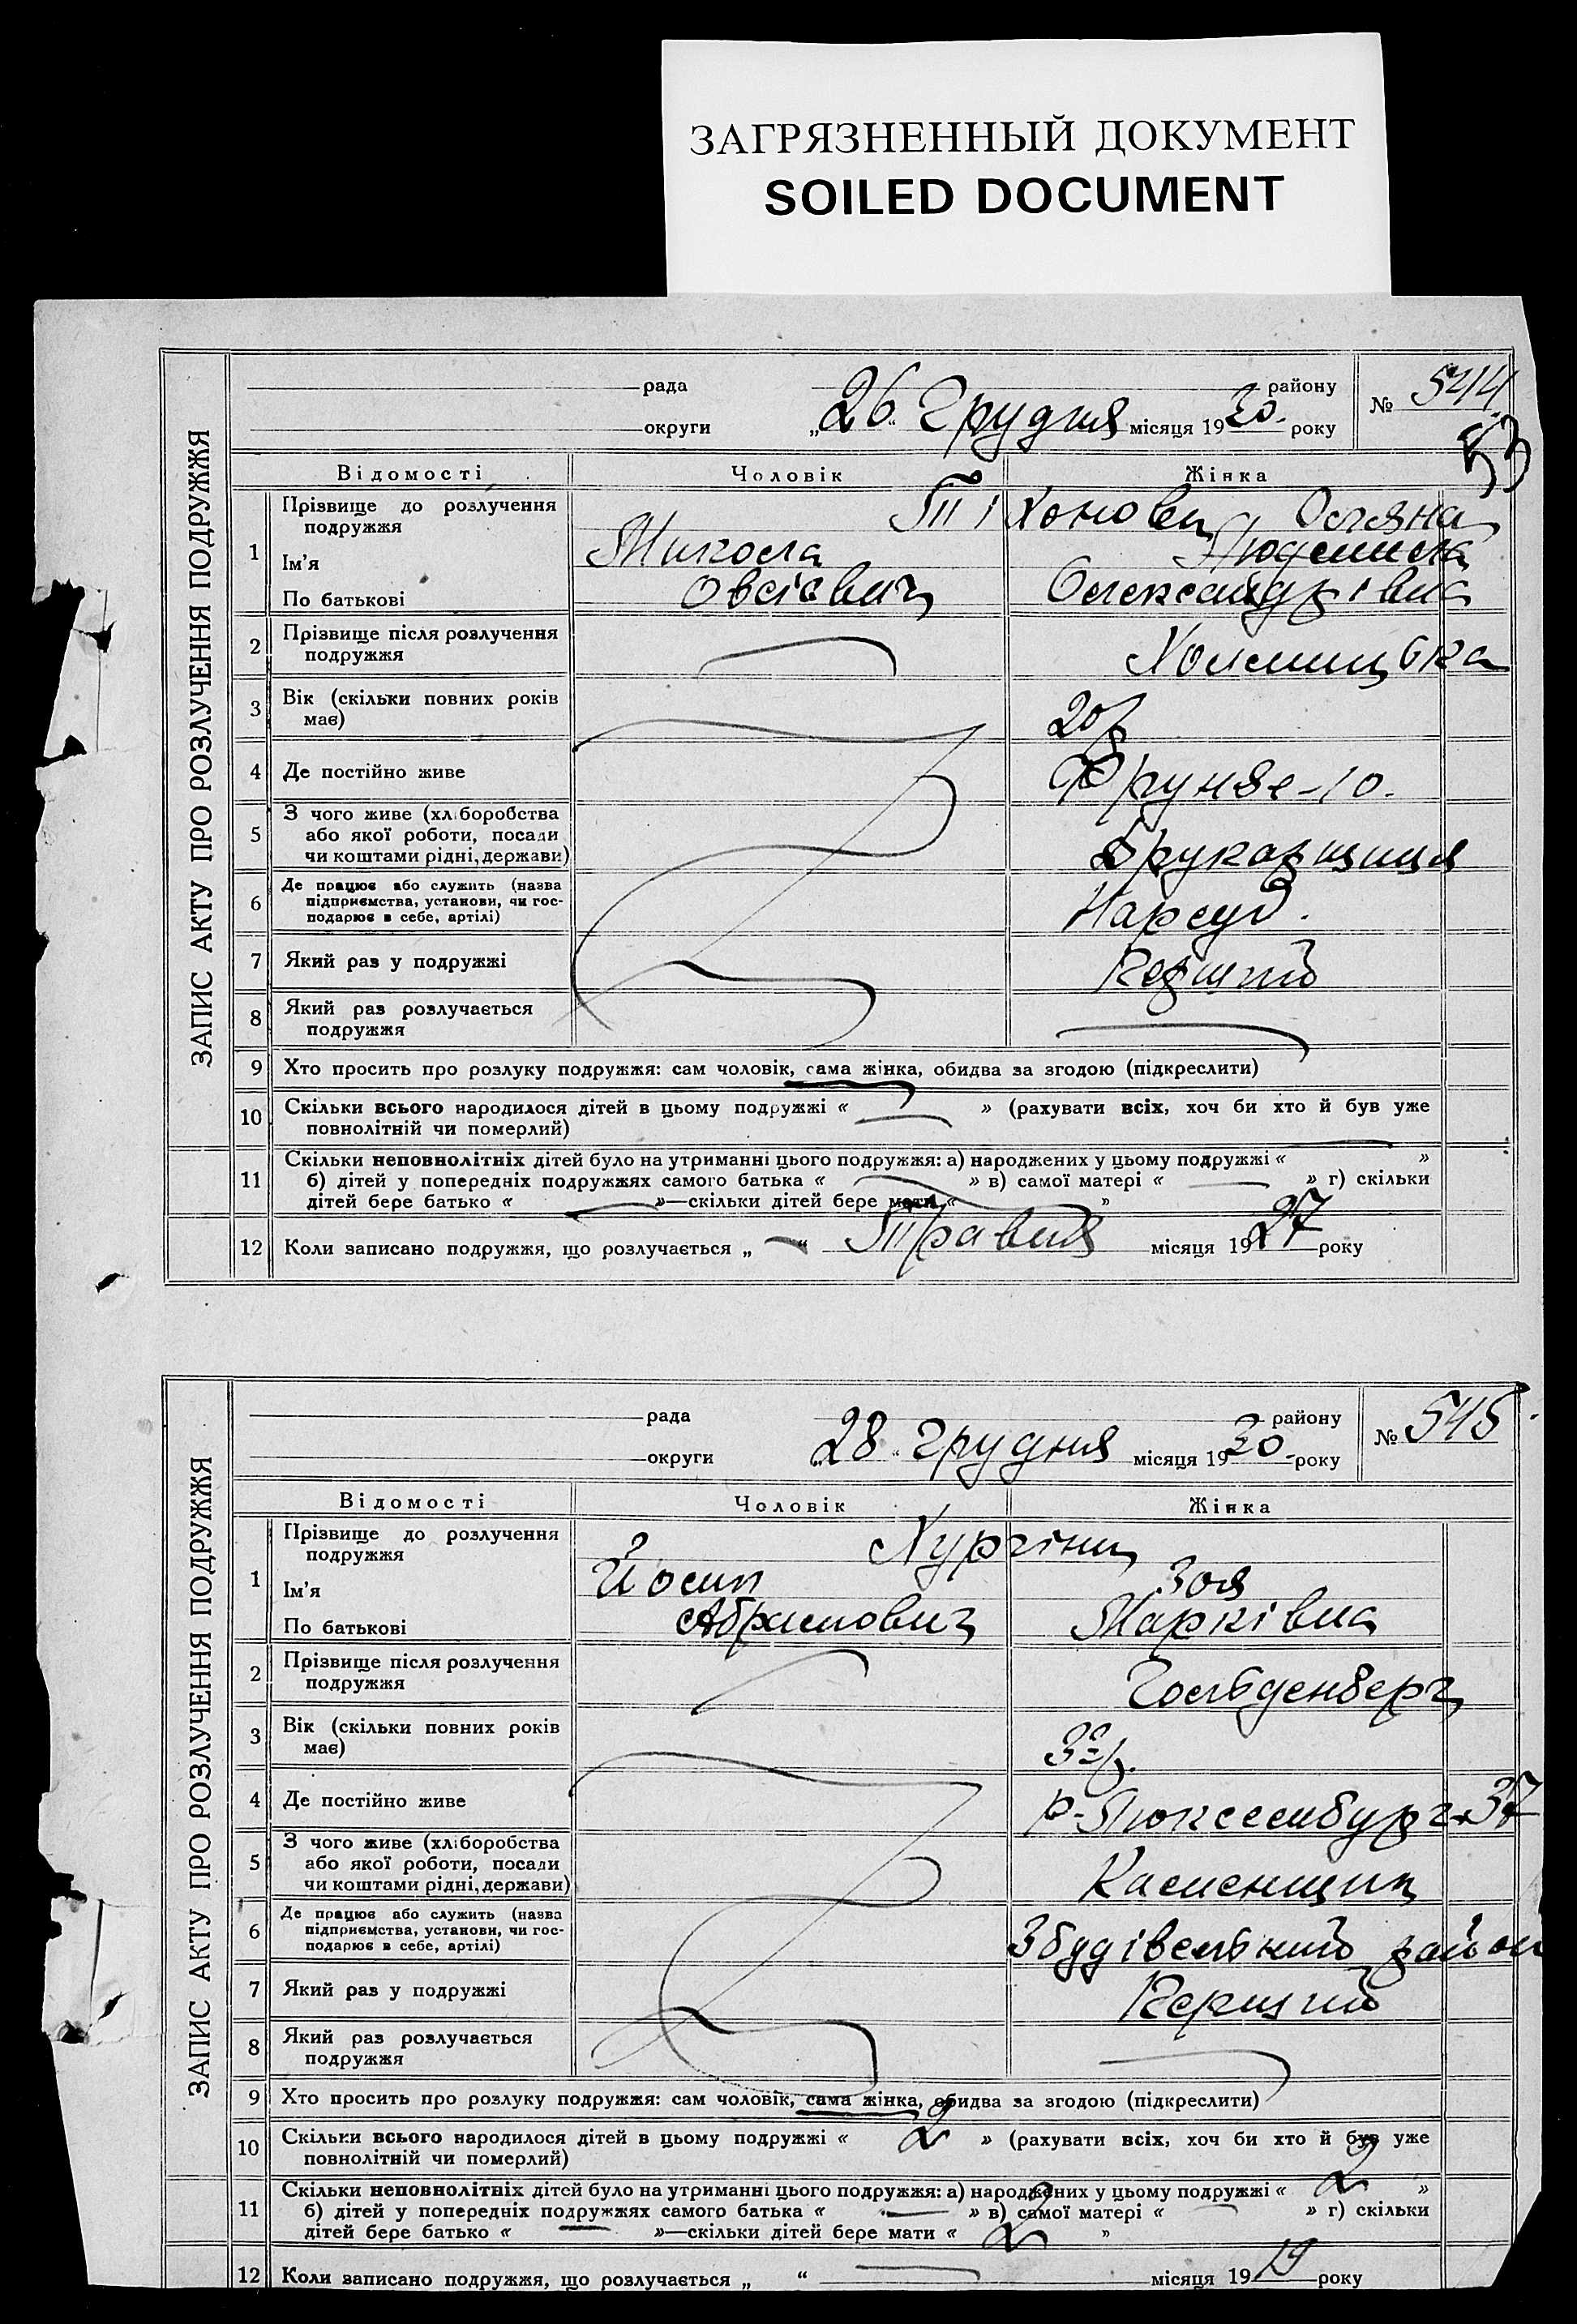 ЗАГРЯЗНЕННЫЙ ДОКУМЕНТ
SOILED DOCUMENT
ЗАПИС АКТУ ПРО РОЗЛУЧЕННЯ ПОДРУЖЖЯ
рада району
№ 544
округи „26“ Грудня місяця 1930. року
53
Відомості Чоловік Жінка
1 Прізвище до розлучення подружжя Тіхонови
Ім’я Микола Людмила
По батькові Овсієвич Олександрівна
2 Прізвище після розлучення
подружжя
3 Вік (скільки повних років
має) 20 р
4 Де постійно живе Фрунзе-10.
5 З чого живе (хліборобства
або якої роботи, посади
чи коштами рідні, держави) Друкарщиця
6 Де працює або служить (назва
підприємства, установи, чи гос-
подарює в себе, артілі) Нарсуд.
7 Який раз у подружжі Перший
8 Який раз розлучається
подружжя
9 Хто просить про розлуку подружжя: сам чоловік, сама жінка, обидва за згодою (підкреслити)
10 Скільки всього народилося дітей в цьому подружжі « — » (рахувати всіх, хоч би хто й був уже
повнолітній чи померлий)
11 Скільки неповнолітніх дітей було на утриманні цього подружжя: а) народжених у цьому подружжі « — »
б) дітей у попередніх подружжях самого батька « — » в) самої матері « — » г) скільки
дітей бере батько « — »—скільки дітей бере мати « — »
12 Коли записано подружжя, що розлучається „ — “ Травня місяця 1927 року
ЗАПИС АКТУ ПРО РОЗЛУЧЕННЯ ПОДРУЖЖЯ
рада району
№ 545
округи „28“ Грудня місяця 1930. року
Відомості Чоловік Жінка
1 Прізвище до розлучення подружжя Хургіни
Ім’я Йосип Зоя
По батькові Абрамович Марківна
2 Прізвище після розлучення
подружжя Гольденберг
3 Вік (скільки повних років
має)
4 Де постійно живе Р-Люксембург 37
5 З чого живе (хліборобства
або якої роботи, посади
чи коштами рідні, держави)
6 Де працює або служить (назва
підприємства, установи, чи гос-
подарює в себе, артілі)
7 Який раз у подружжі Перший
8 Який раз розлучається
подружжя
9 Хто просить про розлуку подружжя: сам чоловік, сама жінка, обидва за згодою (підкреслити)
10 Скільки всього народилося дітей в цьому подружжі « 2 » (рахувати всіх, хоч би хто й був уже
повнолітній чи померлий)
11 Скільки неповнолітніх дітей було на утриманні цього подружжя: а) народжених у цьому подружжі « 2 »
б) дітей у попередніх подружжях самого батька « — » в) самої матері « — » г) скільки
дітей бере батько « — »—скільки дітей бере мати « 2 »
12 Коли записано подружжя, що розлучається „ “ — місяця 1919 року